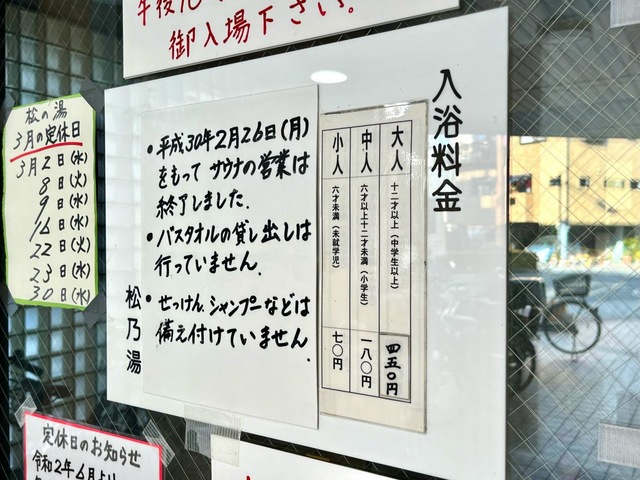 午後10
御入場下さい。
松の湯
3月の定休日
3月 2日(水)
8日(火)
9日(水)
16日(水)
22日(火)
23日(水)
30日(水)
入浴料金
大人 十二才以上(中学生以上) 四五〇円
中人 六才以上十二才未満(小学生) 一八〇円
小人 六才未満(未就学児) 七〇円
•平成30年2月26日(月)
をもって サウナの営業は
終了しました.
•バスタオルの貸し出しは
行っていません.
•せっけん.シャンプーなどは
備え付けていません.
松乃湯
定休日のお知らせ
令和2年6月より